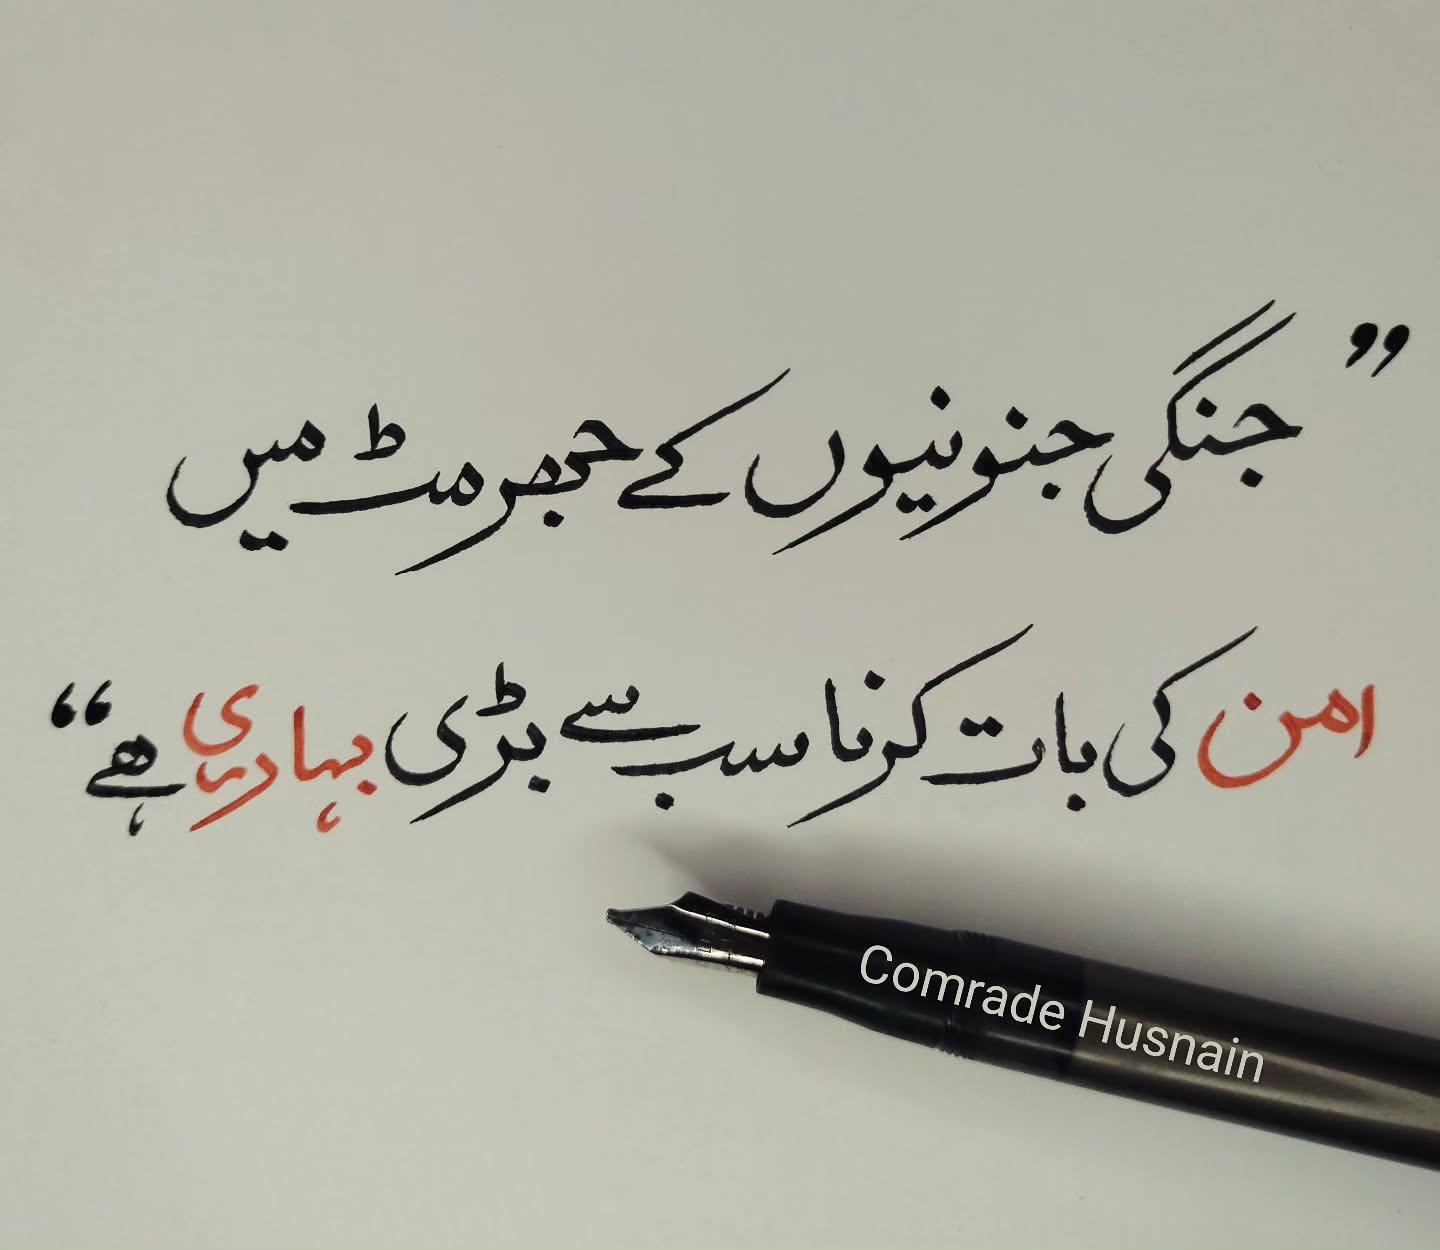 ”جنگی جنونیوں کے جھرمٹ میں
امن کی بات کرنا سب سے بڑی بہادری ہے“
Comrade Husnain